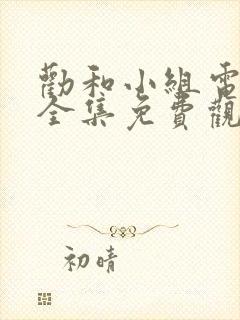 勸和小組電
全集免費觀
初晴